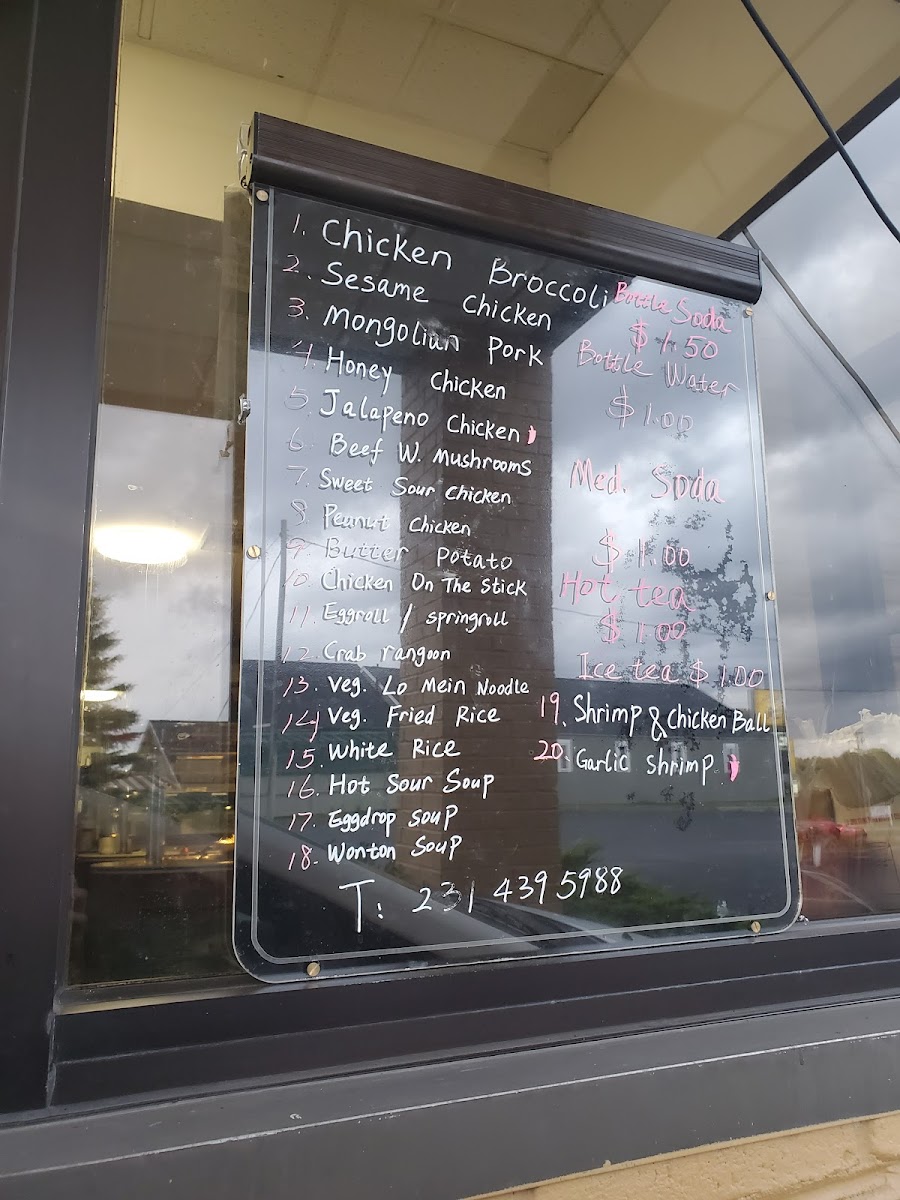 1. Chicken Broccoli
2. Sesame Chicken
3. Mongolian Pork
4. Honey Chicken
5. Jalapeno Chicken
6. Beef W. Mushrooms
7. Sweet Sour Chicken
8. Peanut Chicken
9. Butter Potato
10 Chicken On The Stick
11. Eggroll / springroll
12. Crab rangoon
13. Veg. Lo Mein Noodle
14 Veg. Fried Rice
15. White Rice
16. Hot Sour Soup
17. Eggdrop soup
18. Wonton Soup
Bottle Soda
$1.50
Bottle Water
$1.00
Med. Soda
$1.00
Hot tea
$1.00
Ice tea $1.00
19. Shrimp & Chicken Ball
20. Garlic shrimp
T: 231 439 5988